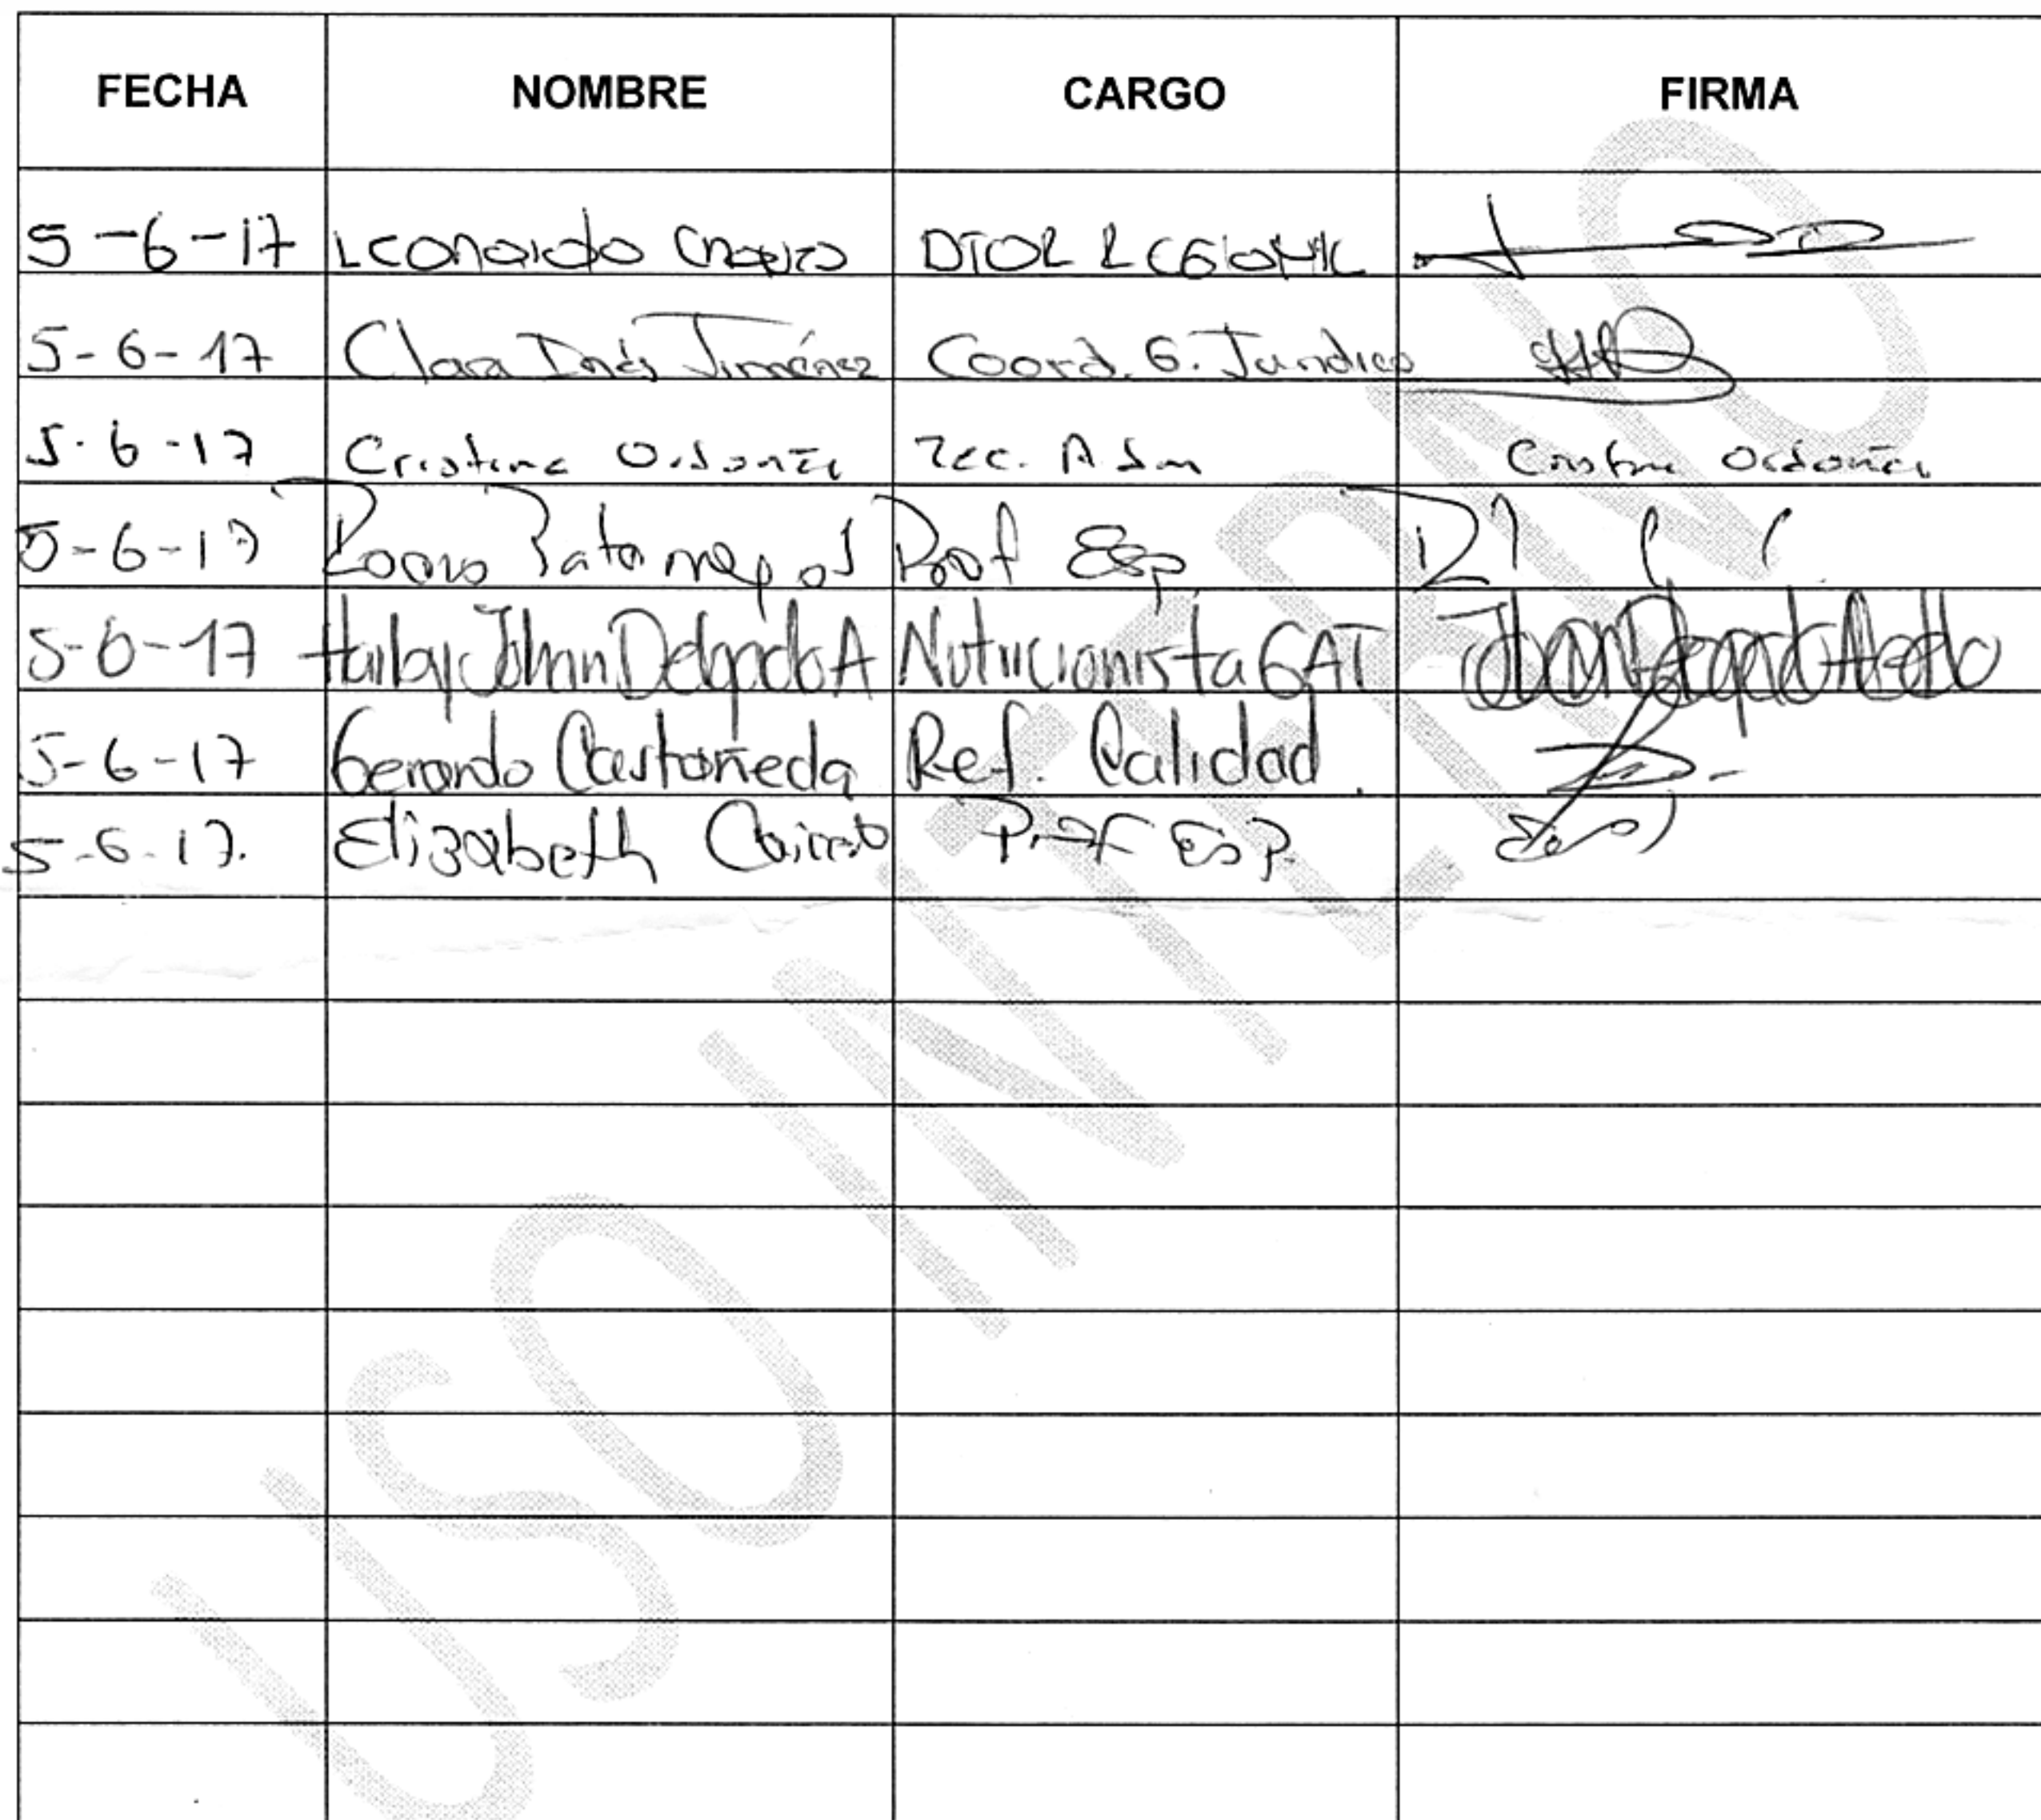 FECHA NOMBRE CARGO FIRMA
5-6-17 Leonardo
5-6-17 Clara Inés Jiménez Coord. G. Jurídico
5-6-17 Cristina Ordoñez Tec. Adm Cristina Ordoñez
5-6-17 Prof Esp
5-6-17 Harby Johan Delgado A Nutricionista GAT Johan Delgado
5-6-17 Gerardo Castañeda Ref. Calidad.
5-6-17. Elizabeth Prof Esp.
USO INTERNO